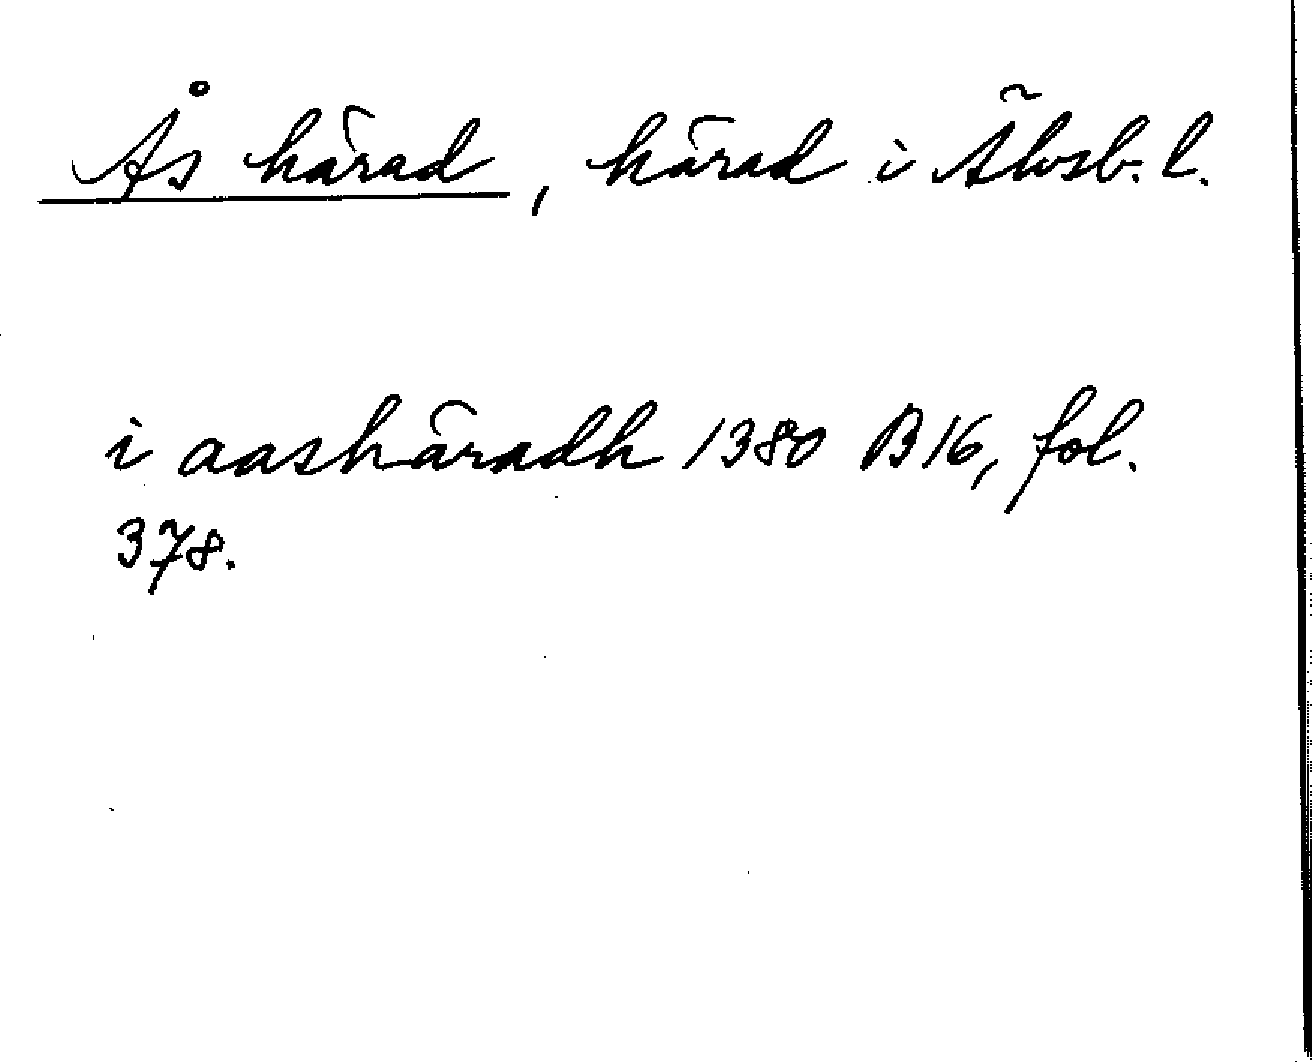 Ås härad, härad i Älvsb. l.
i aashäradh 1380 B16, fol.
378.